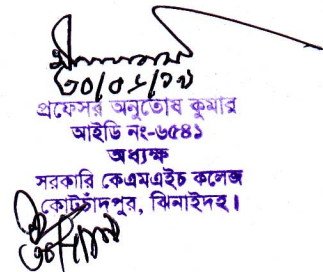 প্রফেসর অনুতোষ কুমার
আইডি নং-৬৫৪১
অধ্যক্ষ
সরকারি কেএমএইচ কলেজ
কোটচাঁদপুর, ঝিনাইদহ।